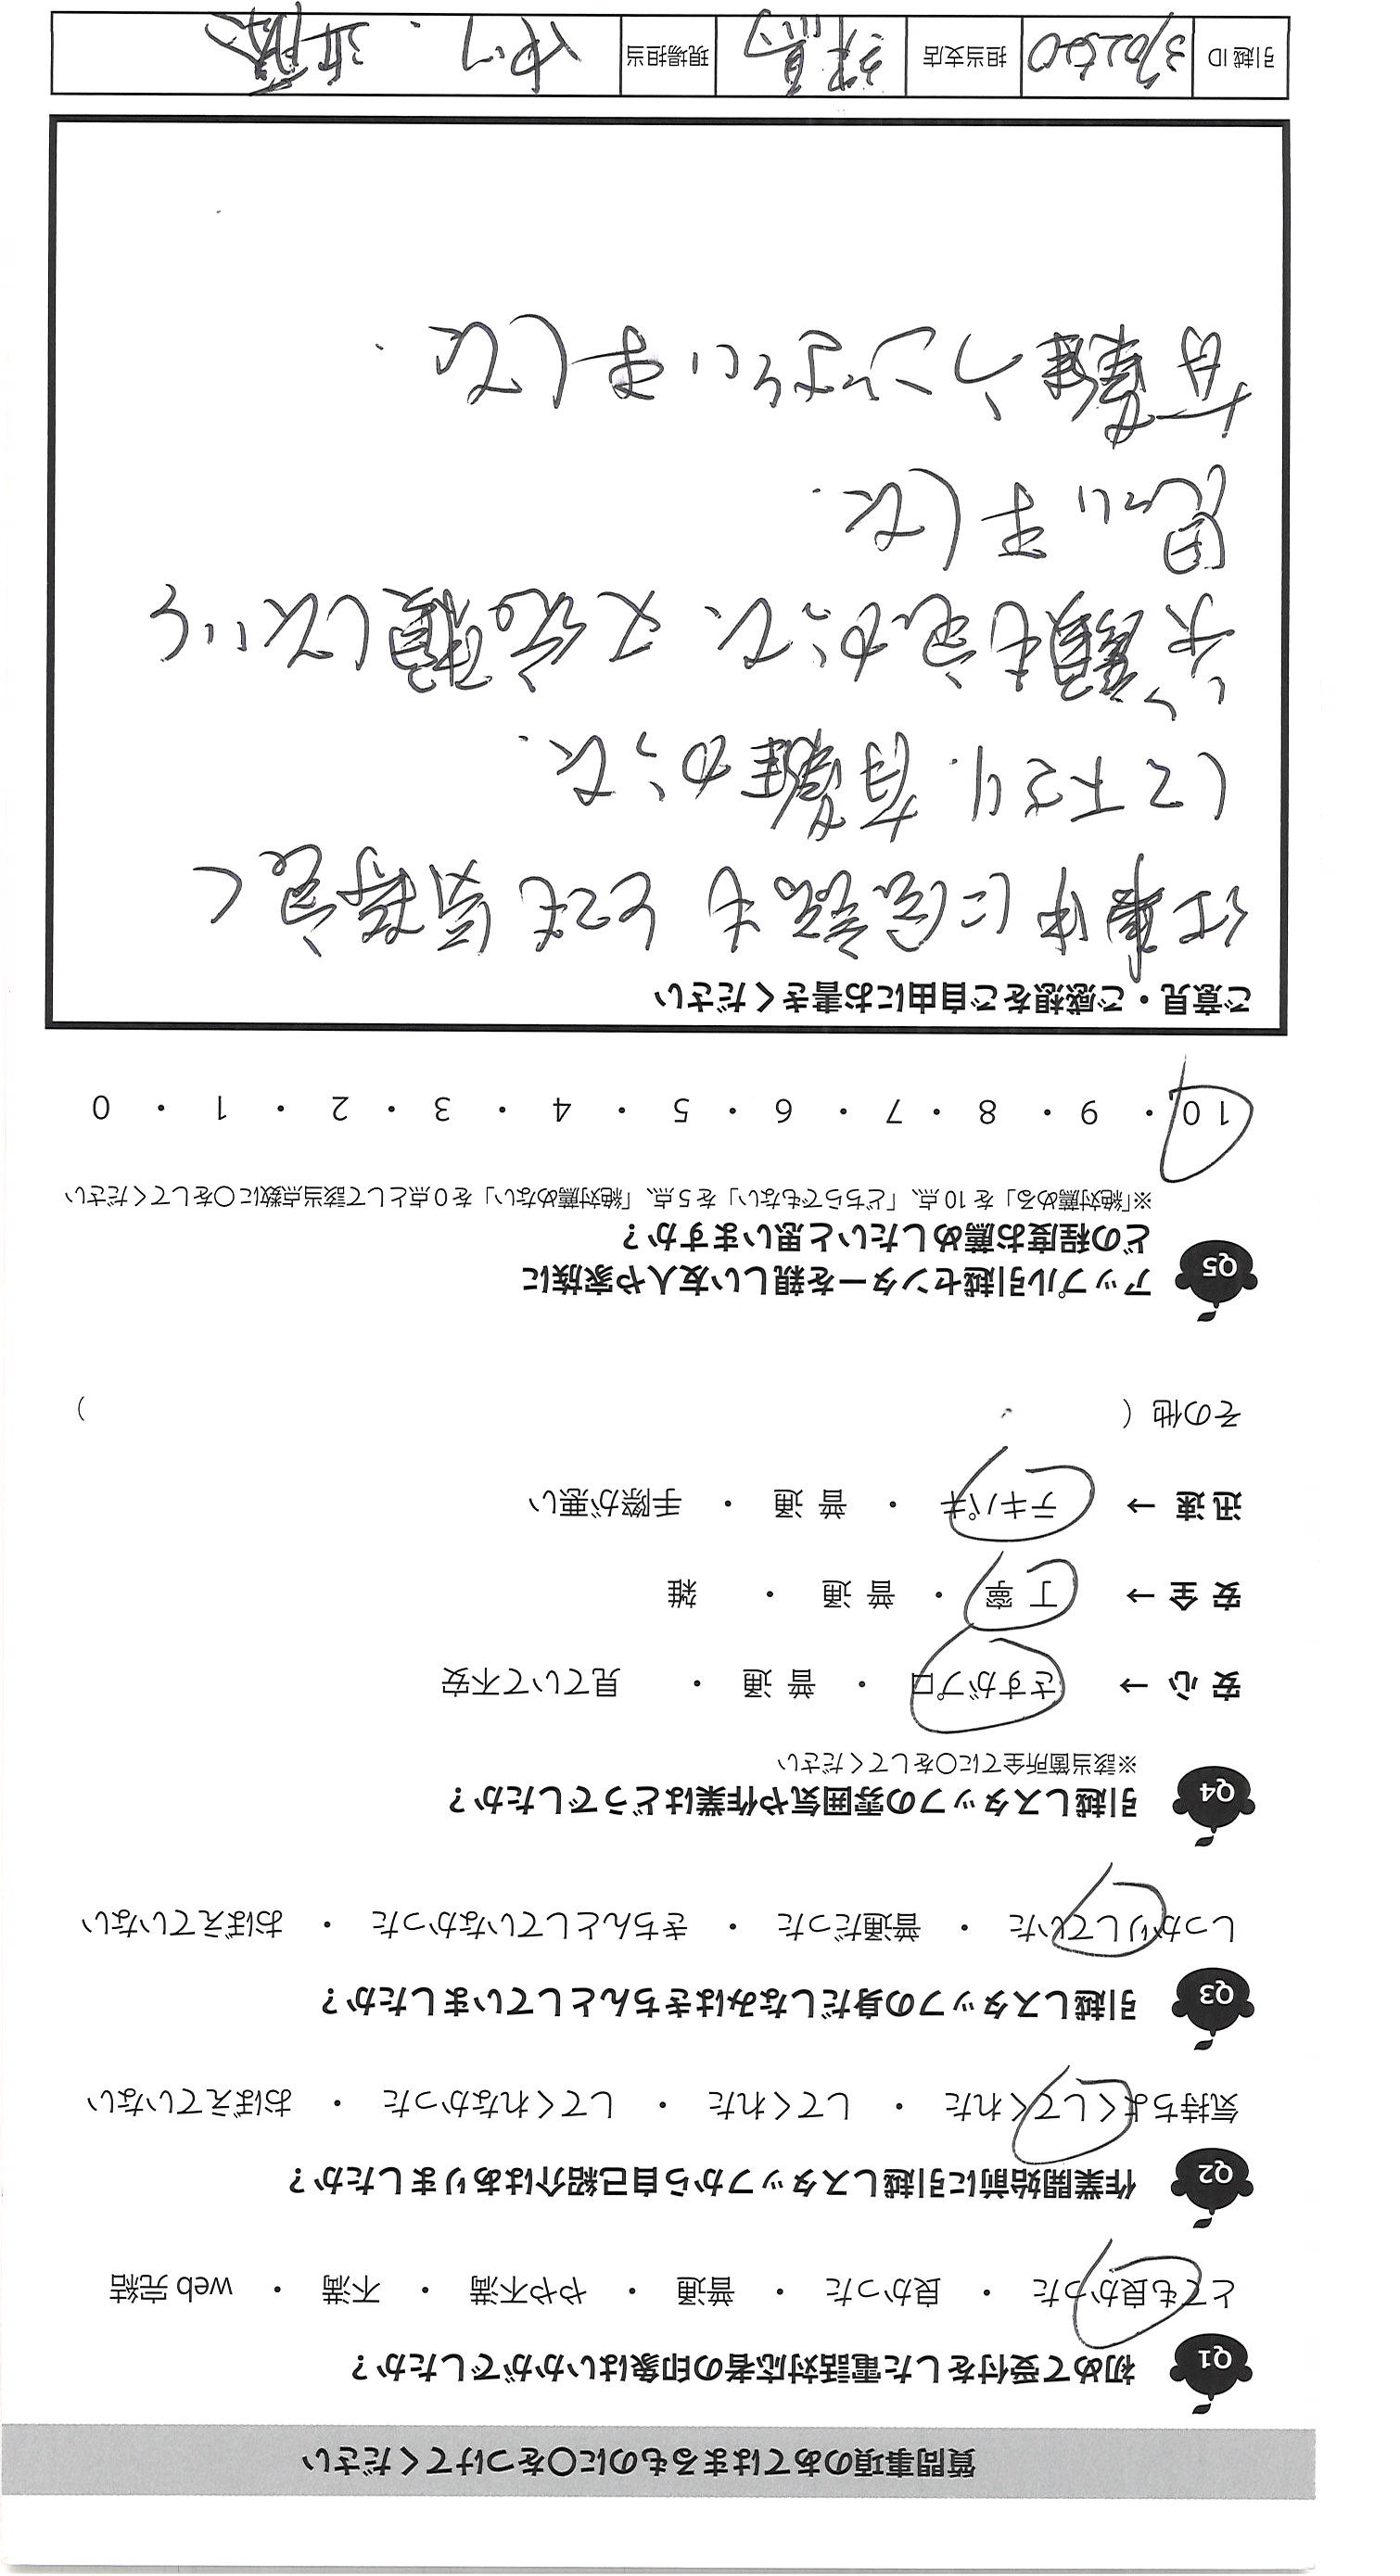 質問事項のあてはまるものに〇をつけてください
Q1 初めて受付をした電話対応者の印象はいかがでしたか？
とても良かった ・ 良かった ・ 普通 ・ やや不満 ・ 不満 ・ web 完結
Q2 作業開始前に引越しスタッフから自己紹介はありましたか？
気持ちよくしてくれた ・ してくれた ・ してくれなかった ・ おぼえていない
Q3 引越しスタッフの身だしなみはきちんとしていましたか？
しっかりしていた ・ 普通だった ・ きちんとしていなかった ・ おぼえていない
Q4 引越しスタッフの雰囲気や作業はどうでしたか？
※該当箇所全てに〇をしてください
安心 → さすがプロ ・ 普通 ・ 見ていて不安
安全 → 丁寧 ・ 普通 ・ 雑
迅速 → テキパキ ・ 普通 ・ 手際が悪い
その他（ ）
Q5 アップル引越センターを親しい友人や家族に
どの程度お薦めしたいと思いますか？
※「絶対薦める」を 10 点、「どちらでもない」を 5 点、「絶対薦めない」を 0 点として該当点数に〇をしてください
10 ・ 9 ・ 8 ・ 7 ・ 6 ・ 5 ・ 4 ・ 3 ・ 2 ・ 1 ・ 0
ご意見・ご感想をご自由にお書きください
仕事中に会話もとても気持良く
して下さり、有難かった.
ご依頼も良かった、又依頼したいと
思いました.
有難うございました.
引越 ID 担当支店 現場担当